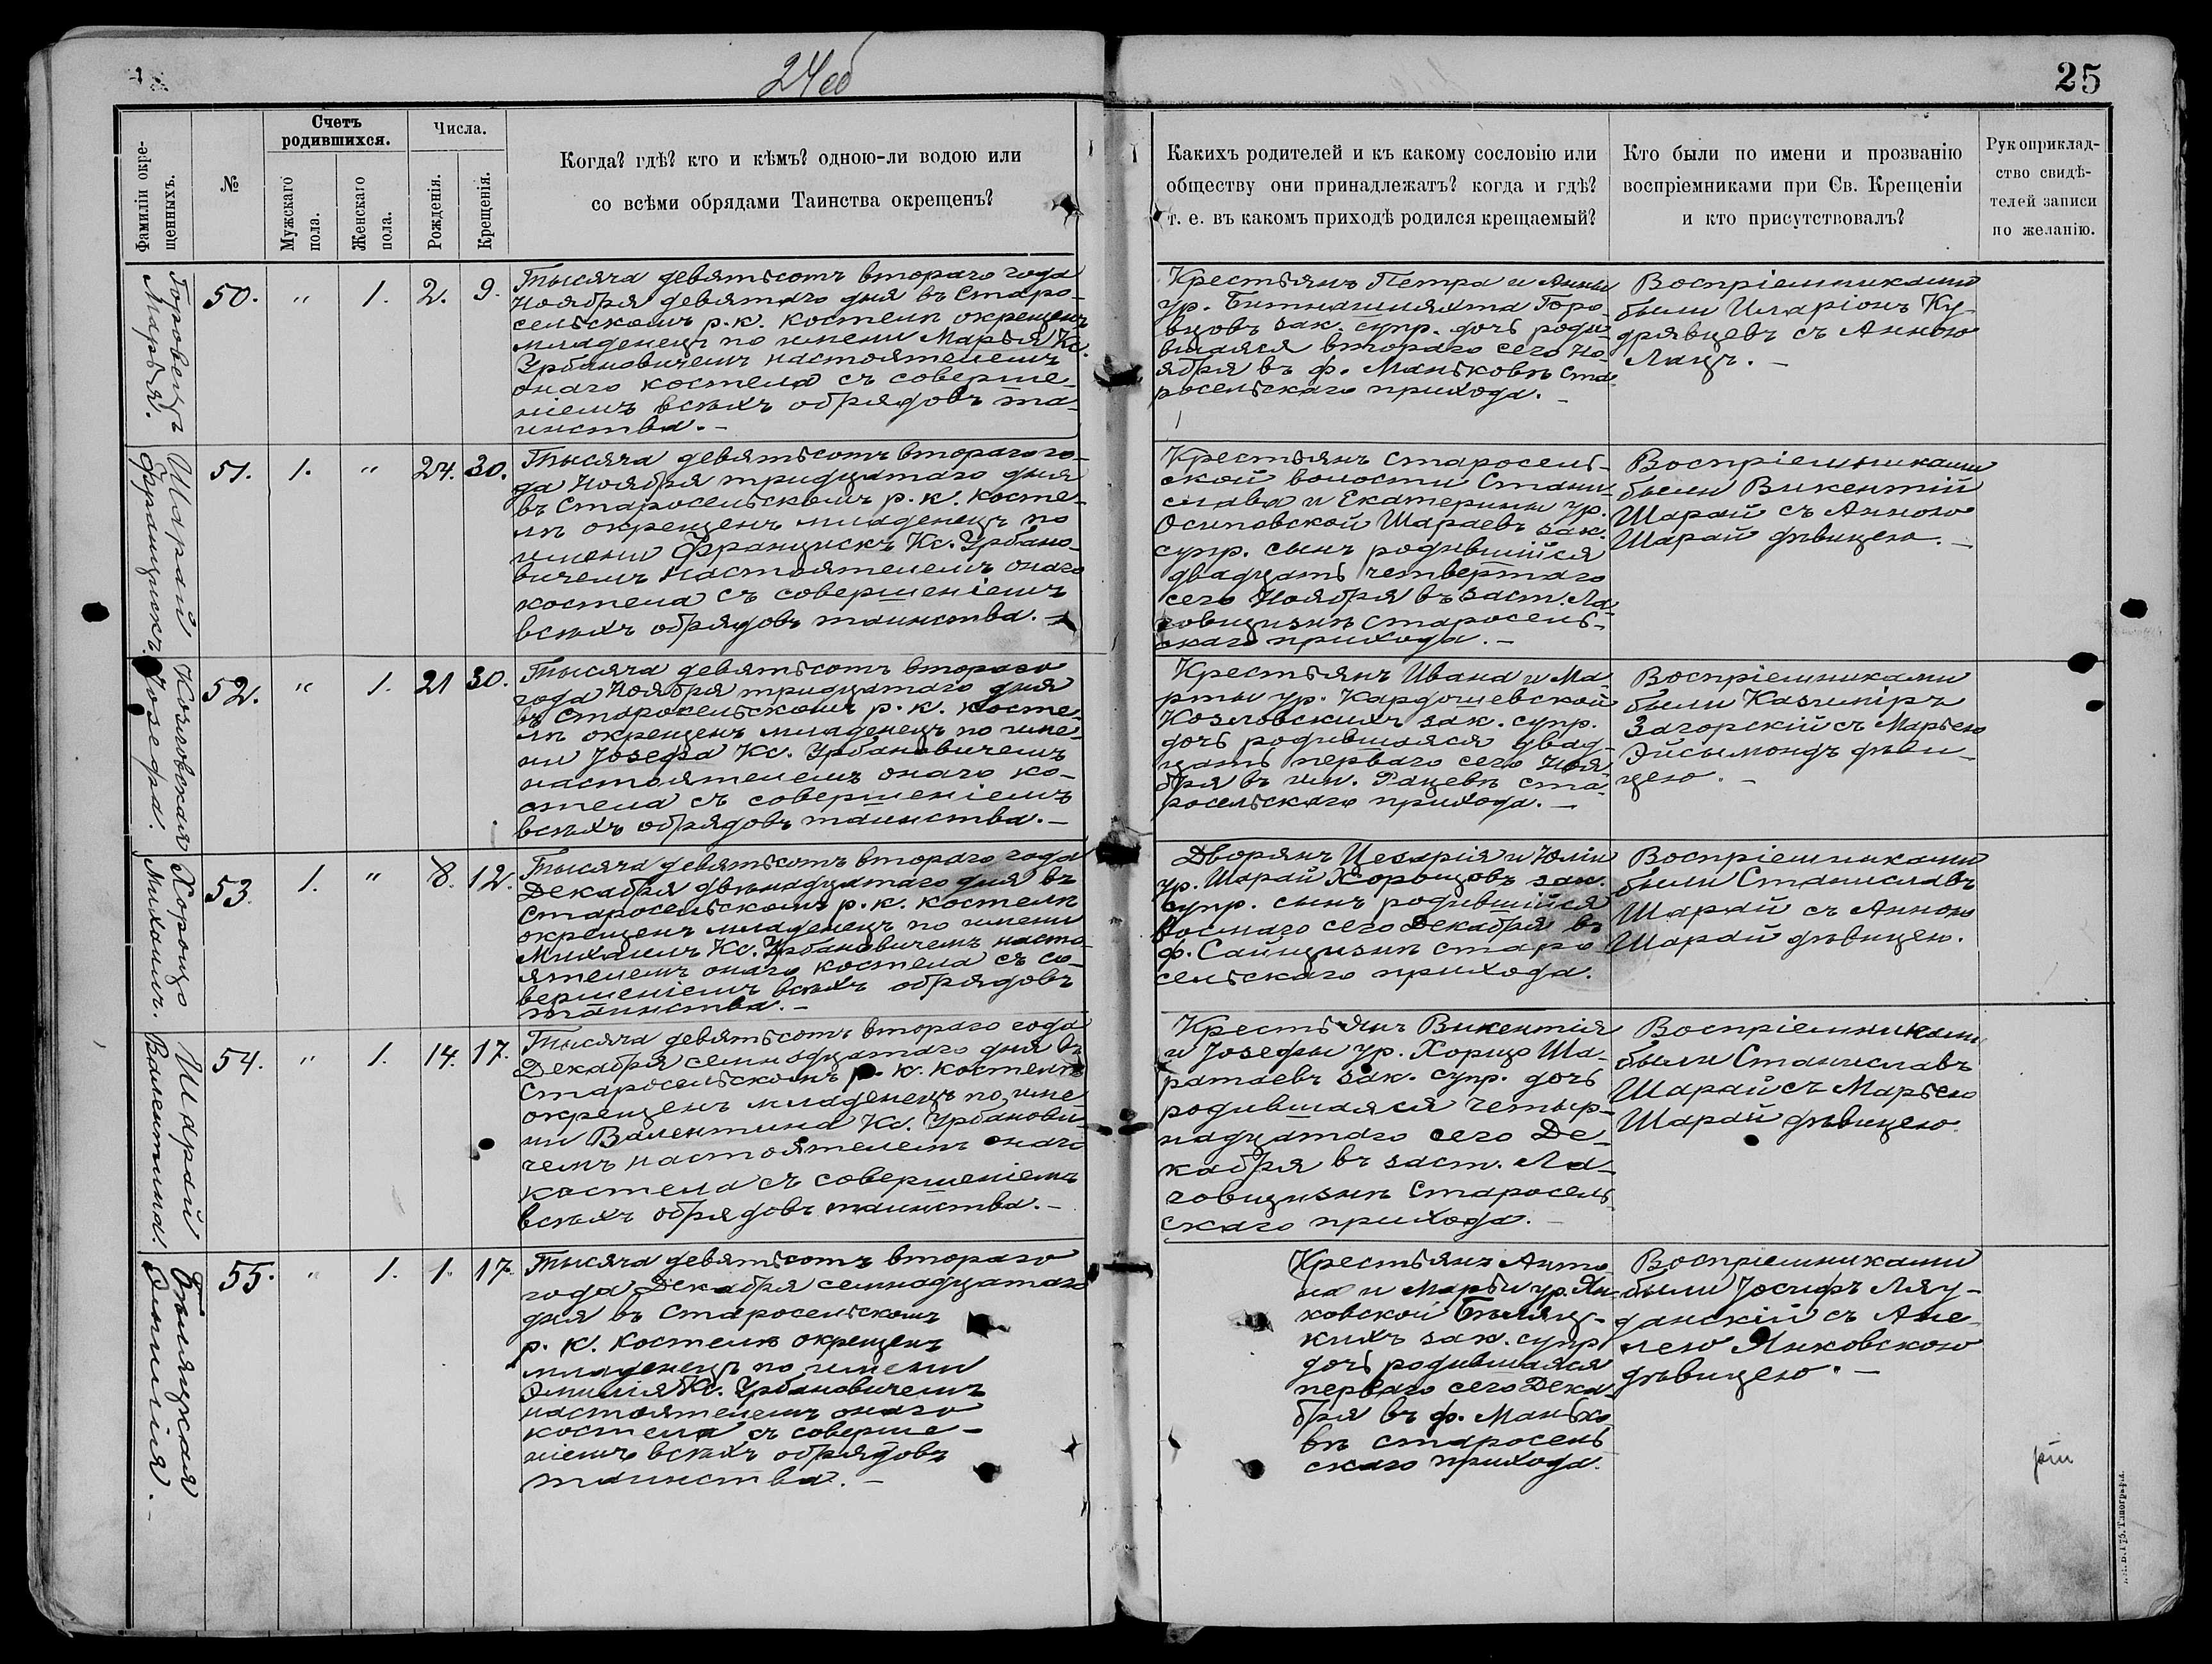 24об
25
Фамиліи окре-
щенныхъ.
№
Счетъ
родившихся.
Мужскаго
пола.
Женскаго
пола.
Числа.
Рожденія.
Крещенія.
Когда? гдѣ? кто и кѣмъ? одною-ли водою или
со всѣми обрядами Таинства окрещенъ?
Какихъ родителей и къ какому сословію или
обществу они принадлежатъ? когда и гдѣ?
т. е. въ какомъ приходѣ родился крещаемый?
Кто были по имени и прозванію
воспріемниками при Св. Крещеніи
и кто присутствовалъ?
Рукоприклад-
ство свидѣ-
телей записи
по желанію.
Горовецъ
Марья.
50. " 1. 2. 9.
Тысяча девятьсотъ втораго года
Ноября девятаго дня въ Старо-
сельскомъ р. к. костелѣ окрещенъ
младенецъ по имени Марья Кс.
Урбановичемъ настоятелемъ
онаго костела съ соверше-
ніемъ всѣхъ обрядовъ та-
инства. –
Крестьянъ Петра и Анны
ур. Битнашляхта Горо-
вцовъ зак. супр. дочь роди-
вшаяся втораго сего Но-
ября въ ф. Маньковѣ Ста-
росельскаго прихода. –
Воспріемниками
были Иларіонъ Ку-
дрявцевъ съ Анною
Лацъ. –
Шарай
Францискъ.
51. 1. " 24. 30.
Тысяча девятьсотъ втораго го-
да Ноября тридцатаго дня
въ Старосельскомъ р. к. косте-
лѣ окрещенъ младенецъ по
имени Францискъ Кс. Урбано-
вичемъ настоятелемъ онаго
костела съ совершеніемъ
всѣхъ обрядовъ таинства. –
Крестьянъ Старосель-
ской волости Стани-
слава и Екатерины ур.
Осиповской Шараевъ зак.
супр. сынъ родившійся
двадцать четвертаго
сего Ноября въ заст. Ла-
говщизнѣ Старосель-
скаго прихода. –
Воспріемниками
были Викентій
Шарай съ Анною
Шарай дѣвицею. –
Козловская
Josефа.
52. " 1. 21 30.
Тысяча девятьсотъ втораго
года Ноября тридцатаго дня
въ Старосельскомъ р. к. косте-
лѣ окрещенъ младенецъ по име-
ни Josефа Кс. Урбановичемъ
настоятелемъ онаго ко-
стела съ совершеніемъ
всѣхъ обрядовъ таинства. –
Крестьянъ Ивана и Ма-
рты ур. Кардошевской
Козловскихъ зак. супр.
дочь родившаяся двад-
цать перваго сего Ноя-
бря въ им. Рацевѣ Ста-
росельскаго прихода. –
Воспріемниками
были Казиміръ
Загорскій съ Марьею
Эйсымондъ дѣви-
цею. –
Хорощо
Михаилъ.
53. 1. " 8. 12.
Тысяча девятьсотъ втораго года
Декабря двѣнадцатаго дня въ
Старосельскомъ р. к. костелѣ
окрещенъ младенецъ по имени
Михаилъ Кс. Урбановичемъ насто-
ятелемъ онаго костела съ со-
вершеніемъ всѣхъ обрядовъ
таинства. –
Дворянъ Цезарія и Юліи
ур. Шарай Хорощовъ зак.
супр. сынъ родившійся
восмаго сего Декабря въ
ф. Сайщизнѣ Старо
сельскаго прихода.
Воспріемниками
были Станиславъ
Шарай съ Анною
Шарай дѣвицею.
Шарай
Валентина.
54. " 1. 14. 17.
Тысяча девятьсотъ втораго года
Декабря семнадцатаго дня въ
Старосельскомъ р. к. костелѣ
окрещенъ младенецъ по име
ни Валентина Кс. Урбанови-
чемъ настоятелемъ онаго
костела съ совершеніемъ
всѣхъ обрядовъ таинства. –
Крестьянъ Викентія
и Josефы ур. Хорщо Ша-
раевъ зак. супр. дочь
родившаяся четыр-
надцатаго сего Де-
кабря въ заст. Ла-
говщизнѣ Старосель
скаго прихода. –
Воспріемниками
были Станиславъ
Шарай съ Марьею
Шарай дѣвицею.
Бѣляцкая
Эмилія. –
55. " 1. 1. 17.
Тысяча девятьсотъ втораго
года Декабря семнадцатаго
дня въ Старосельскомъ
р. к. костелѣ окрещенъ
младенецъ по имени
Эмилія Кс. Урбановичемъ
настоятелемъ онаго
костела съ соверше-
ніемъ всѣхъ обрядовъ
таинства. –
Крестьянъ Анто-
на и Марьи ур. Ян-
ковской Бѣляц-
кихъ зак. супр
дочь родившаяся
перваго сего Дека-
бря въ ф. Манько
вѣ Старосель
скаго прихода.
Воспріемниками
были Jосифъ Ляу-
данскій съ Ане-
лею Янковскою
дѣвицею. –